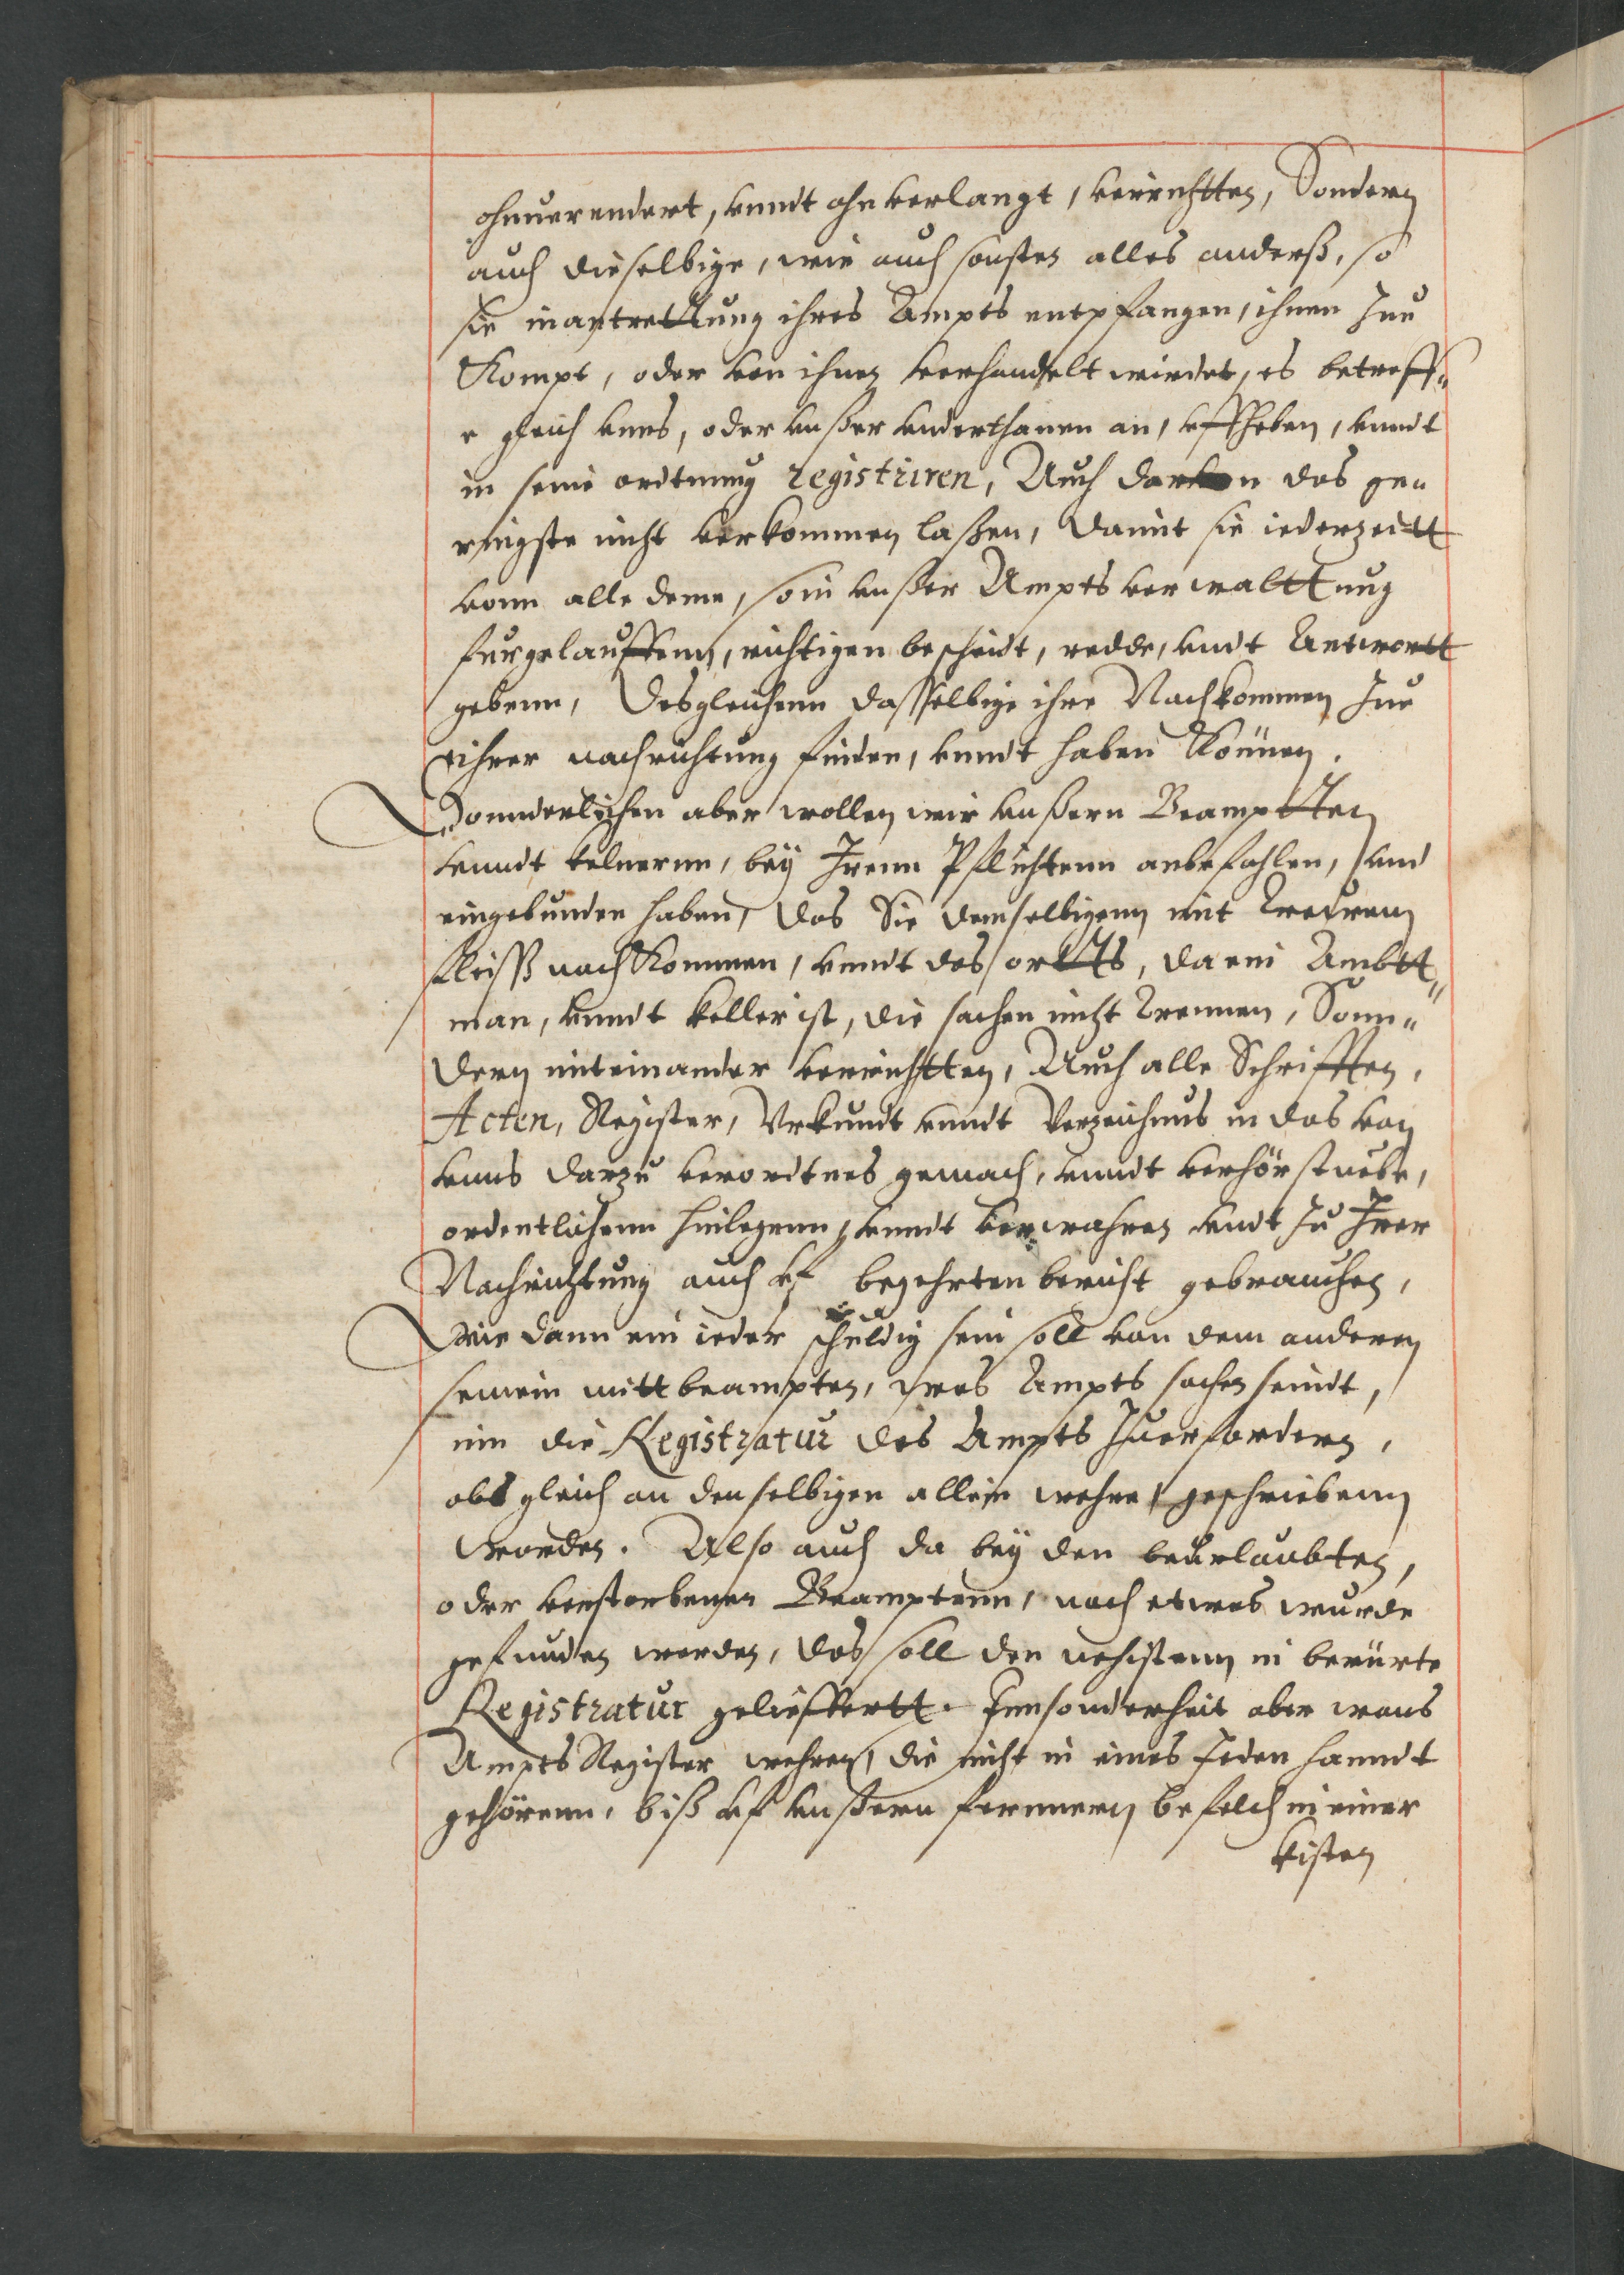 ohnuerendert, vnndt ohnverlangt, verrichtten, Sondern
auch dieselbige, wie auch sonsten alles anderß, so
sie in antrettung ihres Ampts entpfangen, ihnen Zue
Kompt, oder von ihnen verhandelt wirdet, es betreff„
e gleich vnns, oder vnßer vnderthanen an, vffheben, vnndt
in seine ordtnung registriren, Auch darvon das ge„
ringste nicht verkommen laßen, damit sie iederzeitt
vonn alle deme, so in vnßer Ampts verwalttung
furgelauffenn, richtigen bescheidt, redde, vndt Antwortt
gebenn, Desgleichenn dasselbige ihre Nachkommen Zue
ihrer nachrichtung finden, vnndt haben Können.
Sonnderlichen aber wollen wir vnßern Beamptten
vnndt kelnernn, bey Irenn Pflichtenn anbefohlen, vnd
eingebunden haben, das Sie demselbigenn mit Trewenn
fleiß nach Kommen, vnndt des ortts, da ein Ambtt„
man, vnndt keller ist, die sachen nicht Trennen, Sonn„
dern miteinander verrichtten, Auch alle Schrifften,
Acten, Register, Vrkundt vnndt Verzeichnus in das von
vnns darzu verordtnes gemach, vnndt verhörstuebe,
ordentlichenn hinlegenn, vnndt verwahren vndt Zu Irer
Nachrichtung auch vf begehrten bericht gebrauchen,
Wie dann ein ieder schuldig sein soll von dem anderen
seinem mittbeampten, was Ampts sachen seindt,
inn die Registratur des Ampts Zuerfordern,
obs gleich an denselbigen allein wehre geschriebenn
worden. Also auch da bey den beurlaubten,
oder verstorbenen Beamptenn, noch etwas wurde
gefunden werden, das soll den nehistenn in berürte
Registratur gelieffertt. Innsonderheit aber wans
Ampts Register wehren, die nicht in eines Jeden hanndt
gehörenn, biß vf vnßern fernnern befelch in einer
kisten